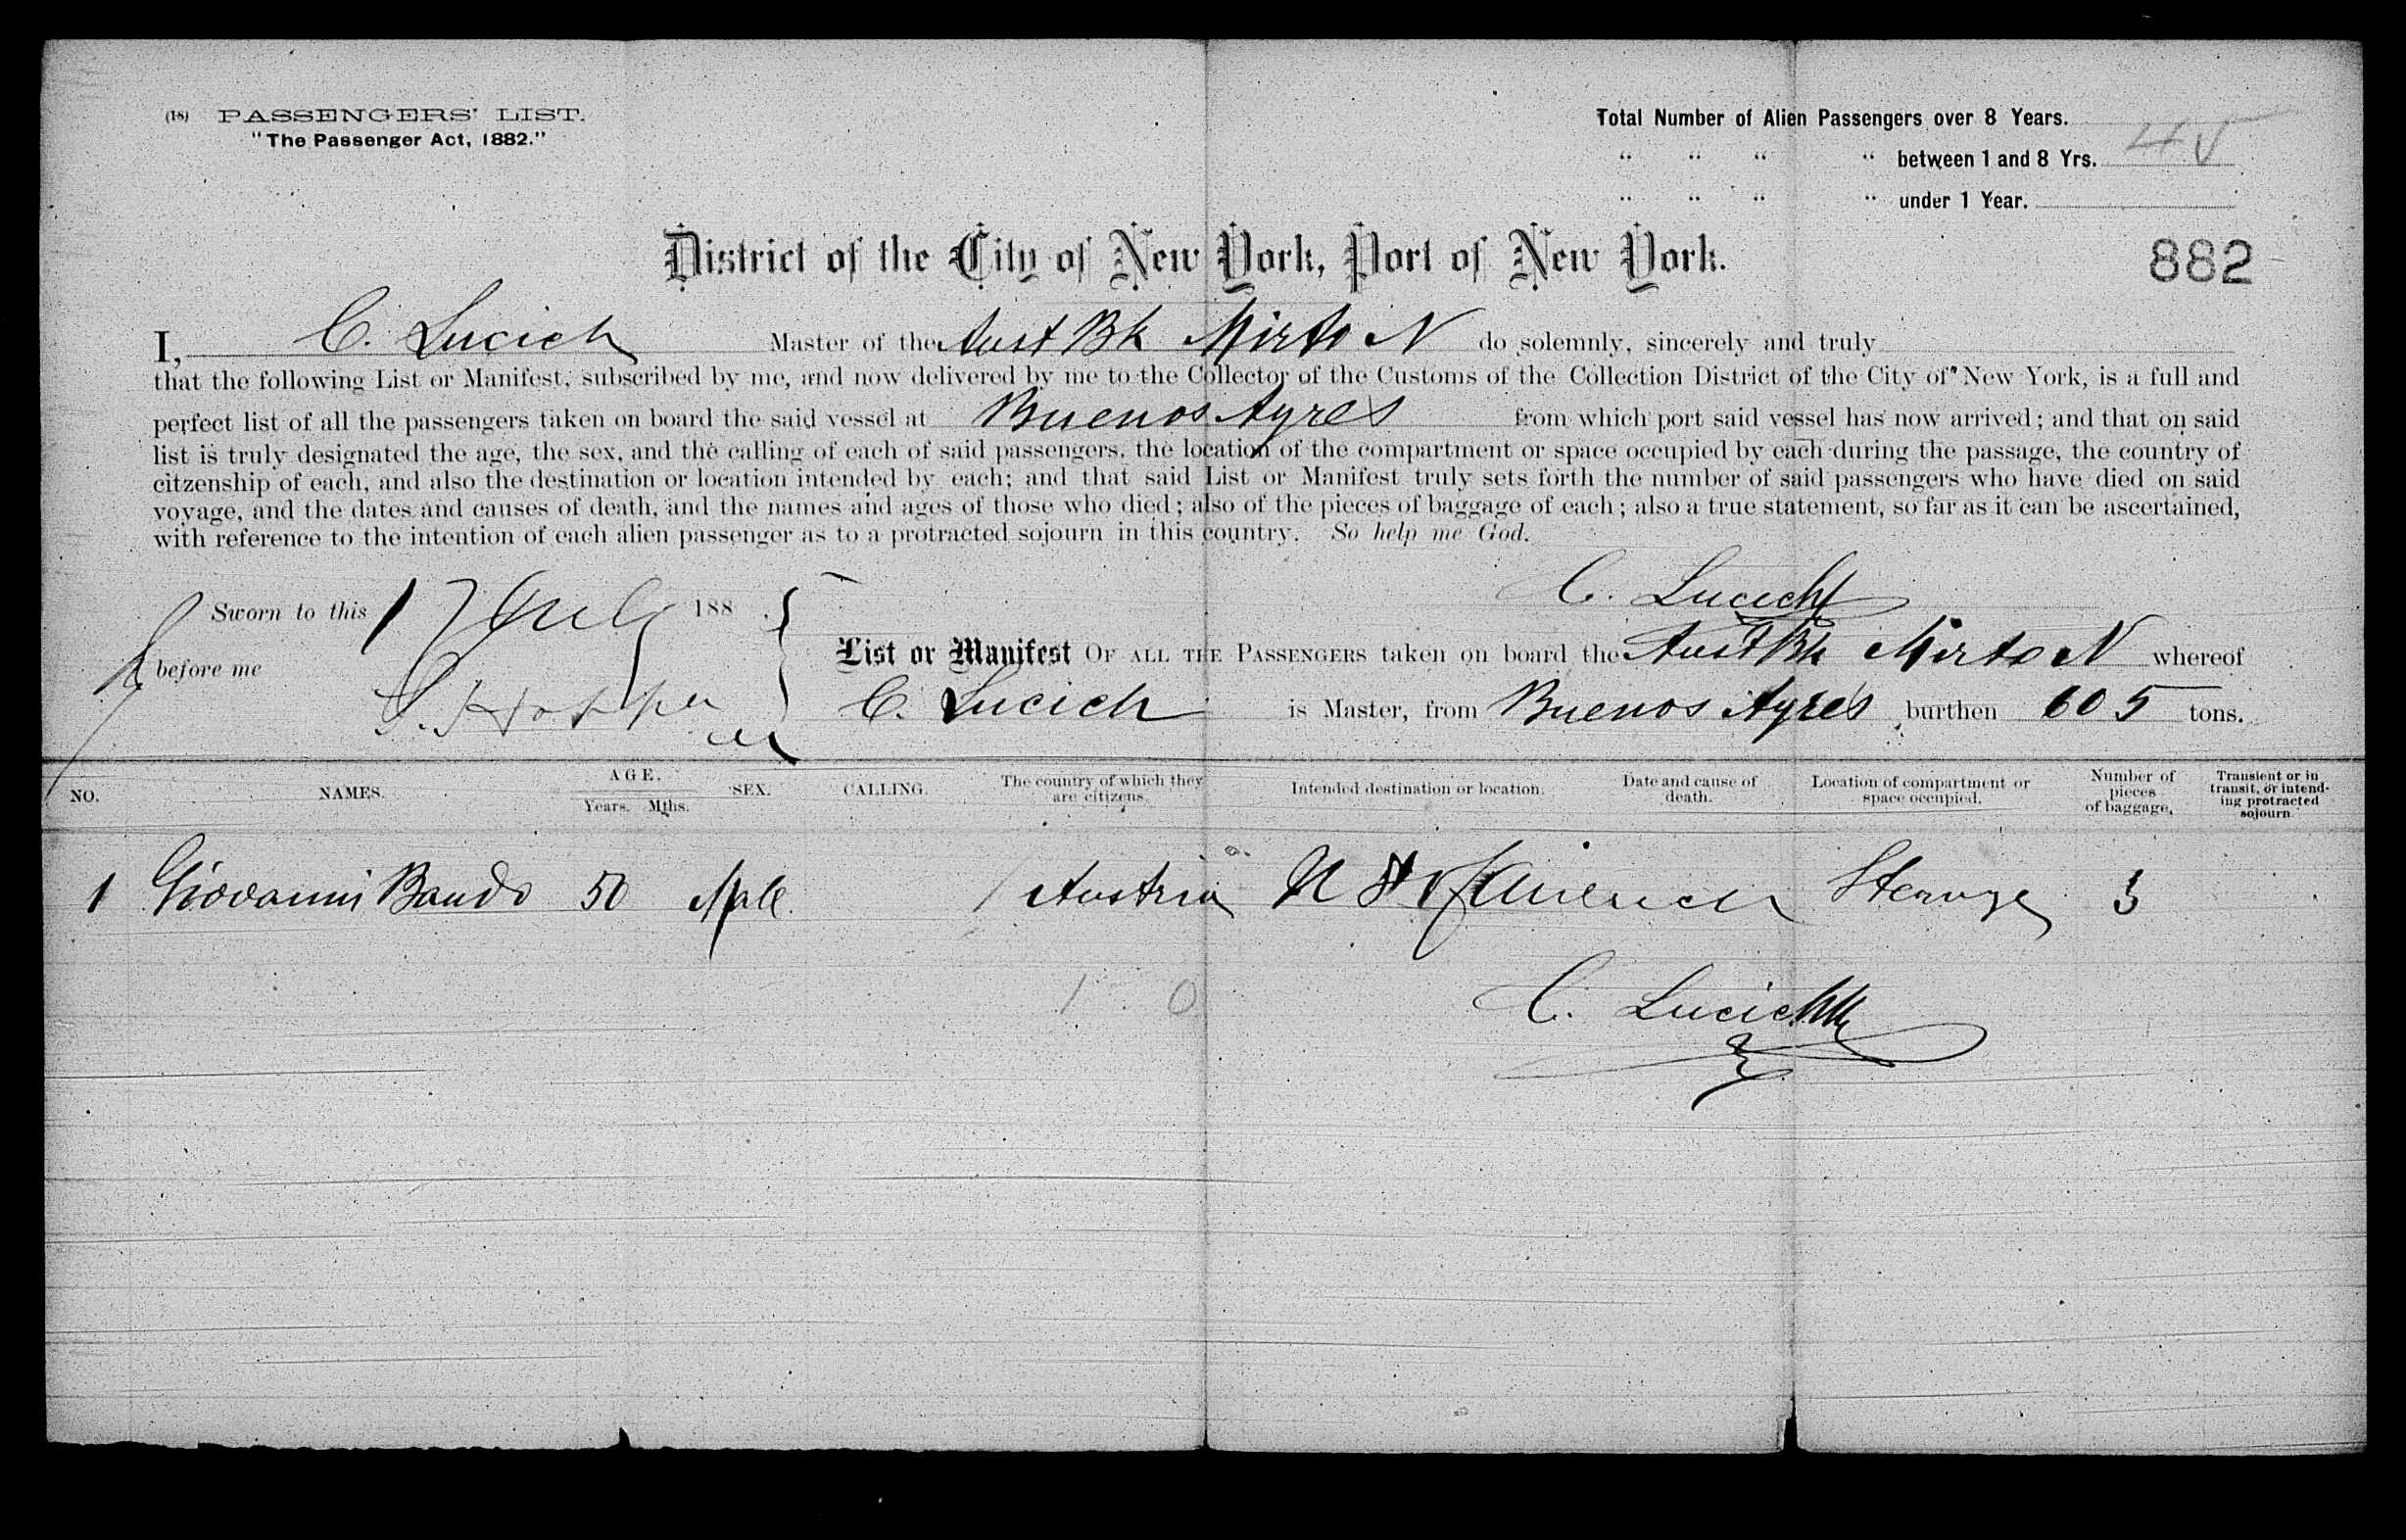 (18) PASSENGERS' LIST.
"The Passenger Act, 1882."
Total Number of Alien Passengers over 8 Years.
" " " " between 1 and 8 Yrs.
" " " " under 1 Year.
District of the City of New York, Port of New York.
882
I, C. Lucich Master of the Aust Bk Mirto N do solemnly, sincerely and truly
that the following List or Manifest, subscribed by me, and now delivered by me to the Collector of the Customs of the Collection District of the City of New York, is a full and
perfect list of all the passengers taken on board the said vessel at Buenos Ayres from which port said vessel has now arrived; and that on said
list is truly designated the age, the sex, and the calling of each of said passengers, the location of the compartment or space occupied by each during the passage, the country of
citzenship of each, and also the destination or location intended by each; and that said List or Manifest truly sets forth the number of said passengers who have died on said
voyage, and the dates and causes of death, and the names and ages of those who died; also of the pieces of baggage of each; also a true statement, so far as it can be ascertained,
with reference to the intention of each alien passenger as to a protracted sojourn in this country. So help me God.
C. Lucich
Sworn to this 17 July 188
before me
List or Manifest OF ALL THE PASSENGERS taken on board the Aust Bk Mirto N whereof
C. Lucich is Master, from Buenos Ayres burthen 605 tons.
NO. NAMES. AGE. Years. Mths. SEX. CALLING. The country of which they are citizens. Intended destination or location. Date and cause of death. Location of compartment or space occupied. Number of pieces of baggage. Transient or in transit, or intending protracted sojourn.
1 Giovanni Bando 50 Male Austria Sterage 3
1 0
C. Lucich